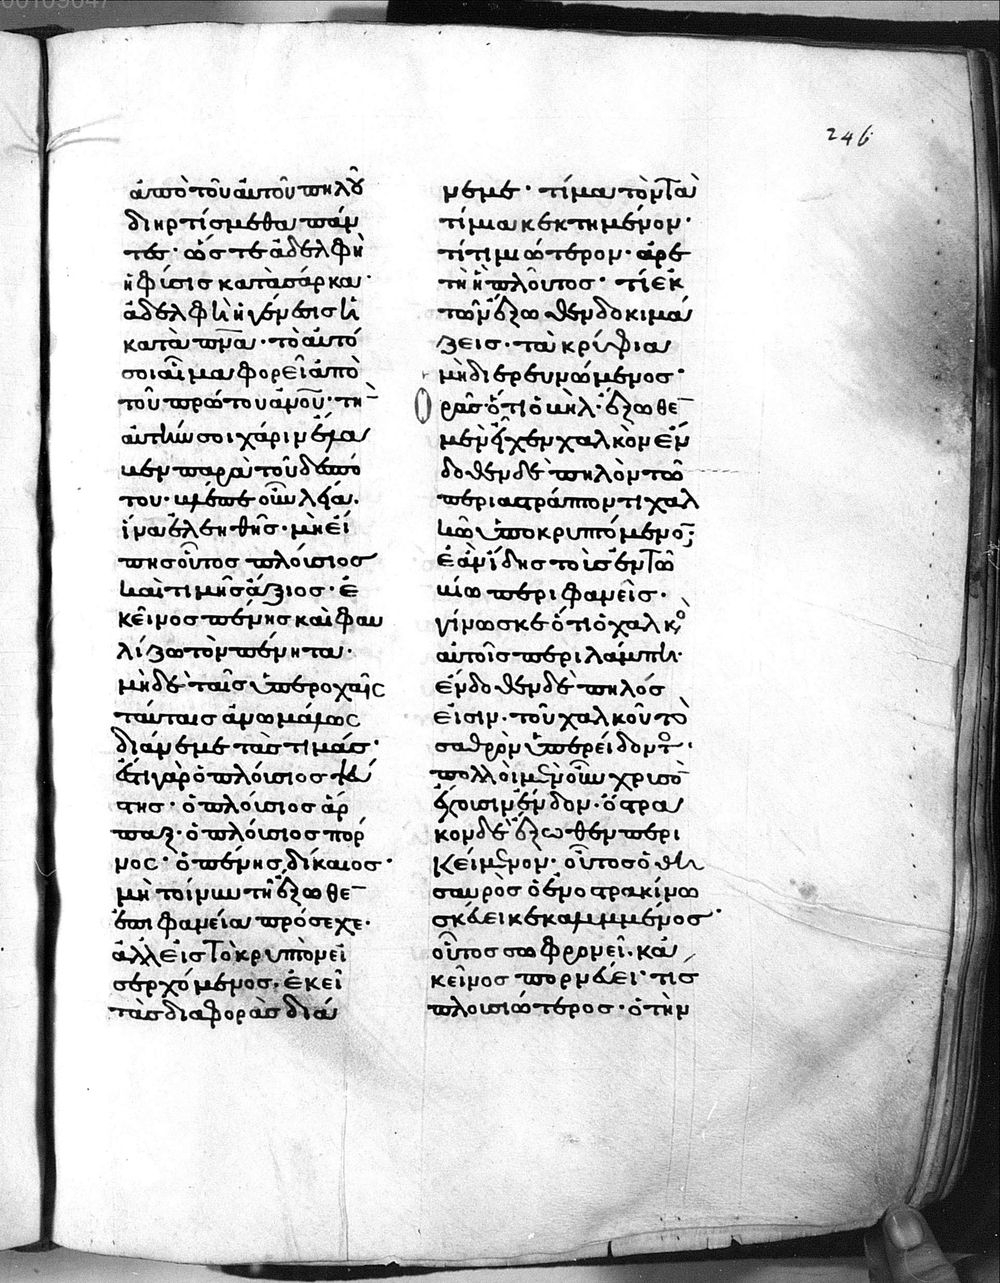 246
ἀπὸ τοῦ αὐτοῦ πηλοῦ
διηρτίσμεθα πάν
τες· ὥστε ἀδελφὴ
ἡ φύσις κατὰ σάρκα·
ἀδελφὴ ἡ γένεσις ἡ
κατὰ πνα· τὸ αὐτό
σοι αἷμα φορεῖ ἀπὸ
τοῦ πρώτου ἀνου· τὴν
αὐτήν σοι χάριν ἔλα
βεν παρὰ τοῦ δεσπό
του· βλέπε οὖν λέγω
ἵνα ἐλεηθῆς· μὴ εἴ
πης οὗτος πλούσιος
καὶ τιμῆς ἄξιος· ἐ
κεῖνος πένης καὶ φαυ
λίζω τὸν πένητα·
μὴδὲ ταῖς ὑπεροχαῖς
ταύταις ἀνωμάλως
διάνεμε τὰς τιμάς·
ἔτι γὰρ ὁ πλούσιος κλέ
πτης· ὁ πλούσιος ἅρ
παξ· ὁ πλούσιος πόρ
νος· ὁ πένης δίκαιος·
μὴ τοίνυν τῆ ἔξωθεν
ἐπιφανεία πρόσεχε·
ἀλλ εἰς τὸ κρυπτὸν εἰ
σερχόμενος· ἐκεῖ
τὰς διαφορὰς διά
νεμε· τίμα τὸν τὰ
τίμια κεκτημένον·
τί τιμιώτερον· ἀρε
τὴ ἢ πλοῦτος· τί ἐκ
τῶν ἔξωθεν δοκιμά
ζεις· τὰ κρύφια
μὴ διερευνώμενος·
ὁρᾶς ὅτι ὁ βὴλ· ἔξωθεν
μὲν εἶχεν χαλκὸν ἔν
δοθεν δὲ πηλὸν τῶ
περιαστράπτοντι χαλ
κῶ ὑποκρυπτόμενον;
ἐὰν ἴδης τοὺς ἐν τῶ
βίω περιφανεῖς·
γίνωσκε ὅτι ὁ χαλκὸς
αὐτοῖς περιλάμπει·
ἔνδοθεν δὲ πηλός
εἰσιν· τοῦ χαλκοῦ τὸ
σαθρὸν ὑπερείδοντος·
πολλοὶ μὲν οὖν χρυσὸν
ἔχουσιν ἔνδον· ὄστρα
κον δὲ ἔξωθεν περι
κείμενον· οὗτος ὁ θη
σαυρὸς ὁ ἐν ὀστρακίνω
σκεύει κεκαλυμμένος·
οὗτος σωφρονεῖ· κἀ
κεῖνος πορνεύει· τίς
πλουσιώτερος· ὁ τὴν